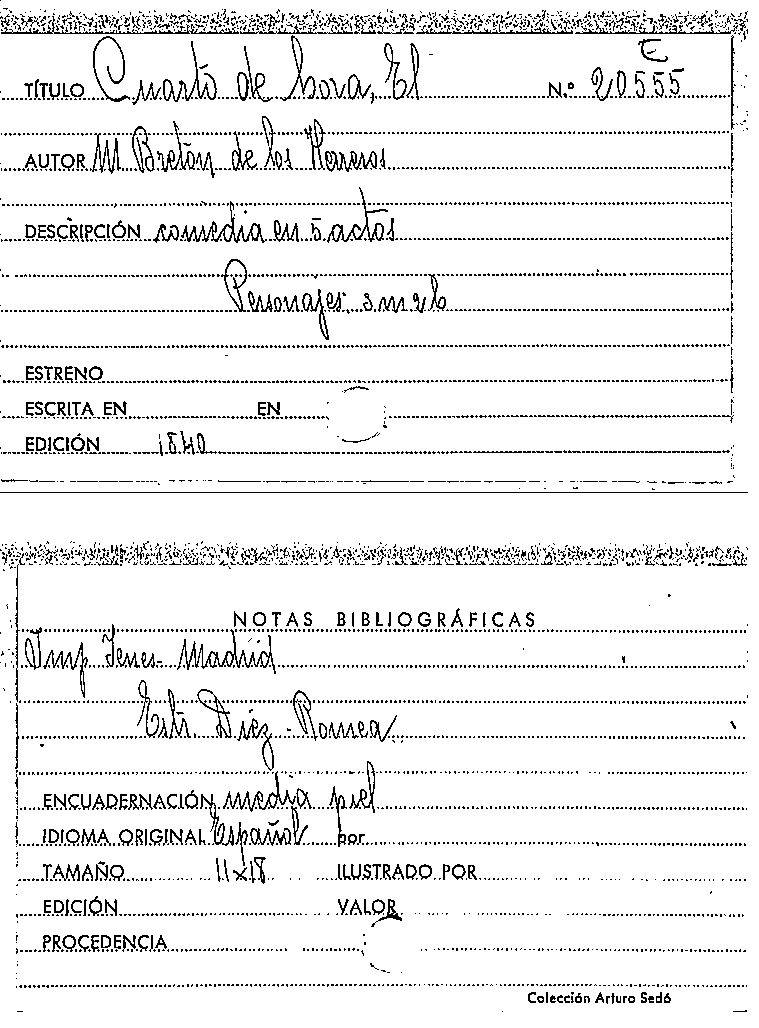 E
TÍTULO Cuarto de hora, El N.º 20555
AUTOR M Bretón de los Herreros
DESCRIPCIÓN comedia en 5 actos
Personajes: 3 m 2 h
ESTRENO
ESCRITA EN EN
EDICIÓN 1840
NOTAS BIBLIOGRÁFICAS
Imp Yenes - Madrid
Estr. Diez - Romea
ENCUADERNACIÓN media piel
IDIOMA ORIGINAL Español por
TAMAÑO 11x18 ILUSTRADO POR
EDICIÓN VALOR
PROCEDENCIA
Colección Arturo Sedó